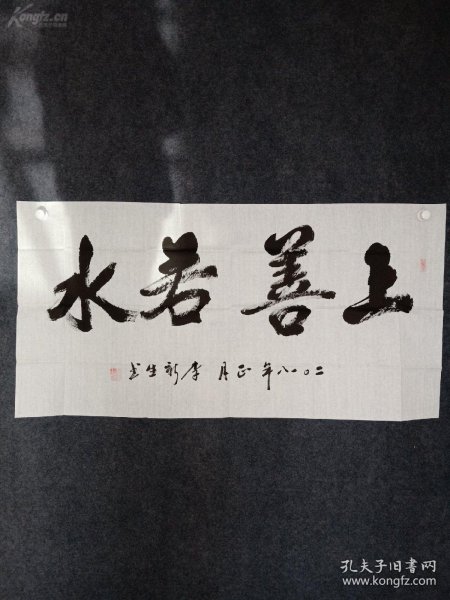 Kongfz.cn
上善若水
二〇一八年正月李新生书
孔夫子旧书网
www.kongfz.com